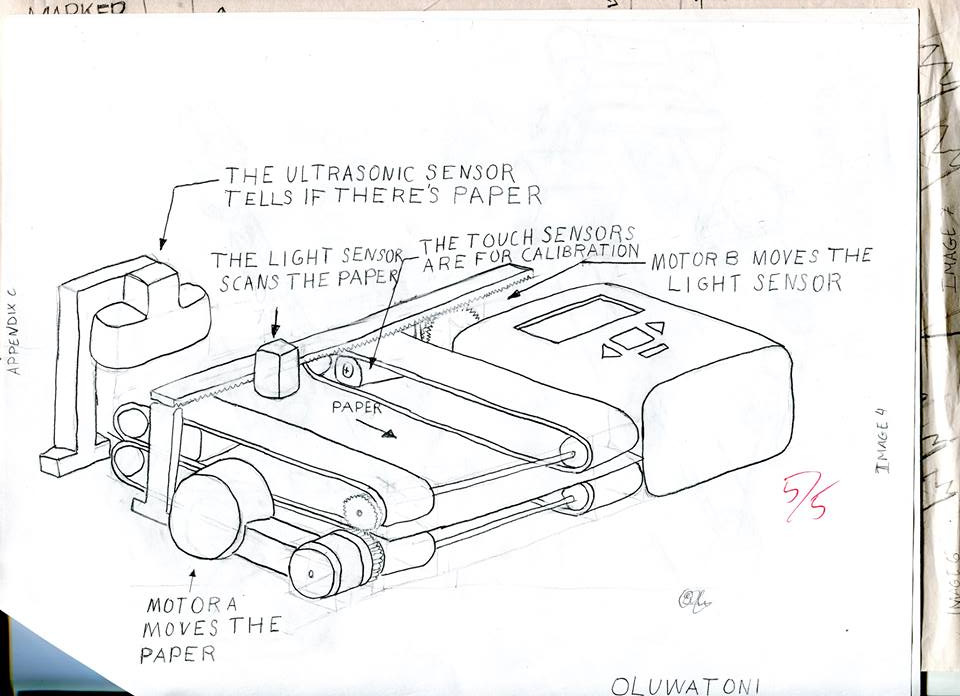 MARKER
THE ULTRASONIC SENSOR
TELLS IF THERE'S PAPER
THE LIGHT SENSOR
SCANS THE PAPER
THE TOUCH SENSORS
ARE FOR CALIBRATION
MOTOR B MOVES THE
LIGHT SENSOR
APPENDIX C
PAPER
IMAGE 4
5/5
MOTOR A
MOVES THE
PAPER
OLUWATONI
IMAGE 7
IMAGE 6